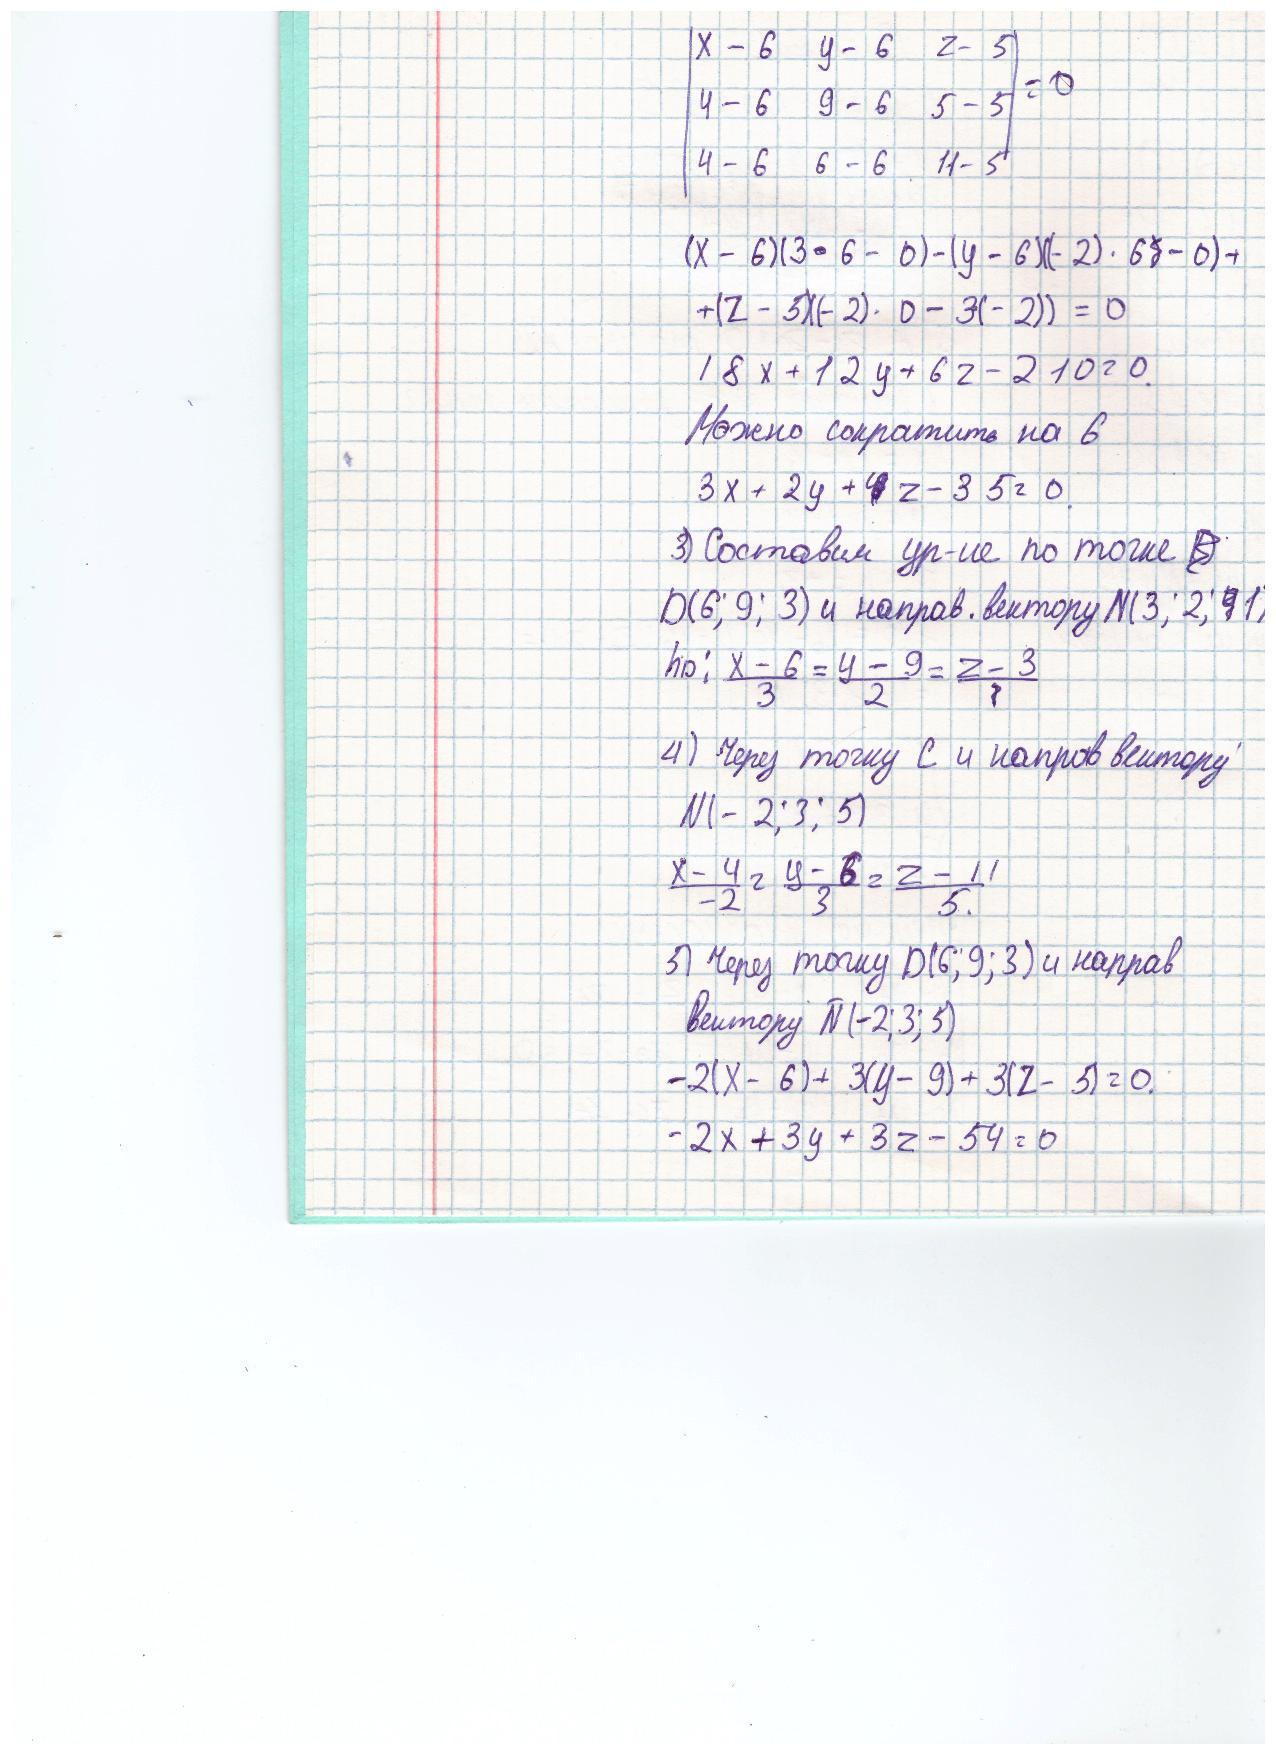 x - 6 y - 6 z - 5
4 - 6 9 - 6 5 - 5 = 0
4 - 6 6 - 6 11 - 5
(x - 6)(3 · 6 - 0) - (y - 6)((-2) · 6 - 0) +
+ (z - 5)((-2) · 0 - 3(-2)) = 0
18x + 12y + 6z - 210 = 0.
Можно сократить на 6
3x + 2y + 1z - 35 = 0.
3) Составим ур-ие по точке
D(6; 9; 3) и направ. вектору N(3; 2; 1)
hD: x - 6 / 3 = y - 9 / 2 = z - 3 / 1
4) Через точку C и направ вектору
N(-2; 3; 5)
x - 4 / -2 = y - 6 / 3 = z - 11 / 5.
5) Через точку D(6; 9; 3) и направ
вектору N̄(-2; 3; 5)
-2(x - 6) + 3(y - 9) + 3(z - 5) = 0.
-2x + 3y + 3z - 54 = 0